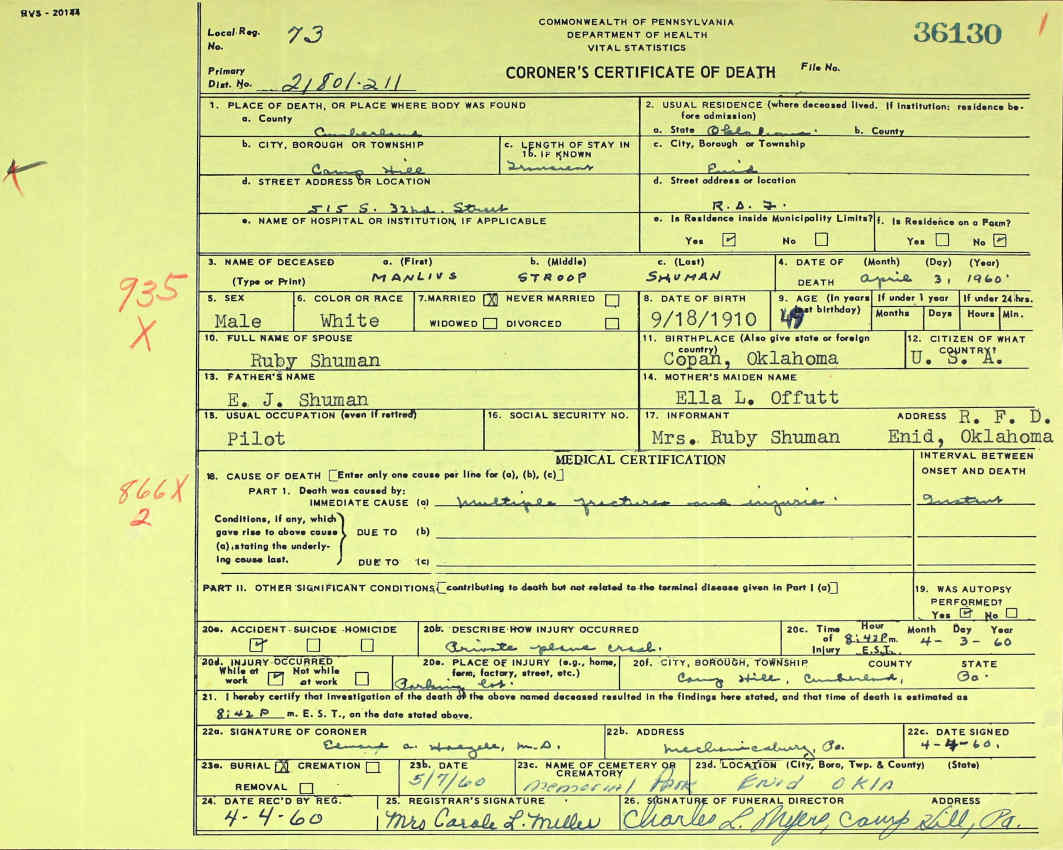 HVS - 20144
Local Reg. No. 73
COMMONWEALTH OF PENNSYLVANIA
DEPARTMENT OF HEALTH
VITAL STATISTICS
36130
1
Primary Dist. No. 21801-211
CORONER'S CERTIFICATE OF DEATH
File No.
1. PLACE OF DEATH, OR PLACE WHERE BODY WAS FOUND
a. County
Cumberland
2. USUAL RESIDENCE (where deceased lived. If institution: residence before admission)
a. State Oklahoma.
b. County
b. CITY, BOROUGH OR TOWNSHIP
Camp Hill
c. LENGTH OF STAY IN 1b. IF KNOWN
Transient
c. City, Borough or Township
Enid
d. STREET ADDRESS OR LOCATION
515 S. 32nd. Street
d. Street address or location
R.D. 7.
e. NAME OF HOSPITAL OR INSTITUTION, IF APPLICABLE
e. Is Residence inside Municipality Limits?
Yes No
f. Is Residence on a Farm?
Yes No
3. NAME OF DECEASED
(Type or Print)
a. (First) b. (Middle) c. (Last)
MANLIUS STROOP SHUMAN
4. DATE OF DEATH
(Month) (Day) (Year)
April 3, 1960
935
X
5. SEX
Male
6. COLOR OR RACE
White
7. MARRIED X NEVER MARRIED
WIDOWED DIVORCED
8. DATE OF BIRTH
9/18/1910
9. AGE (In years last birthday)
49
If under 1 year
Months Days
If under 24 hrs.
Hours Min.
10. FULL NAME OF SPOUSE
Ruby Shuman
11. BIRTHPLACE (Also give state or foreign country)
Copan, Oklahoma
12. CITIZEN OF WHAT COUNTRY?
U. S. A.
13. FATHER'S NAME
E. J. Shuman
14. MOTHER'S MAIDEN NAME
Ella L. Offutt
15. USUAL OCCUPATION (even if retired)
Pilot
16. SOCIAL SECURITY NO.
17. INFORMANT
Mrs. Ruby Shuman
ADDRESS R. F. D.
Enid, Oklahoma
MEDICAL CERTIFICATION
INTERVAL BETWEEN ONSET AND DEATH
18. CAUSE OF DEATH [Enter only one cause per line for (a), (b), (c)]
PART 1. Death was caused by:
IMMEDIATE CAUSE (a) multiple fractures and injuries.
Instant
866X
2
Conditions, if any, which gave rise to above cause (a), stating the underlying cause last.
DUE TO (b)
DUE TO (c)
PART II. OTHER SIGNIFICANT CONDITIONS [contributing to death but not related to the terminal disease given in Part I (a)]
19. WAS AUTOPSY PERFORMED?
Yes No
20a. ACCIDENT SUICIDE HOMICIDE
20b. DESCRIBE HOW INJURY OCCURRED
Private plane crash.
20c. Time of Injury
Hour Month Day Year
8:42 P m. E.S.T. 4- 3- 60
20d. INJURY OCCURRED
While at work Not while at work
20e. PLACE OF INJURY (e.g., home, farm, factory, street, etc.)
Parking lot.
20f. CITY, BOROUGH, TOWNSHIP COUNTY STATE
Camp Hill, Cumberland, Pa.
21. I hereby certify that investigation of the death of the above named deceased resulted in the findings here stated, and that time of death is estimated as
8:42 P m. E. S. T., on the date stated above.
22a. SIGNATURE OF CORONER
M.D.
22b. ADDRESS
Mechanicsburg, Pa.
22c. DATE SIGNED
4-4-60.
23a. BURIAL X CREMATION
REMOVAL
23b. DATE
5/7/60
23c. NAME OF CEMETERY OR CREMATORY
Memorial Park
23d. LOCATION (City, Boro, Twp. & County) (State)
Enid OKLA
24. DATE REC'D BY REG.
4-4-60
25. REGISTRAR'S SIGNATURE
Mrs Carole L. Miller
26. SIGNATURE OF FUNERAL DIRECTOR ADDRESS
Charles L. Myers, Camp Hill, Pa.